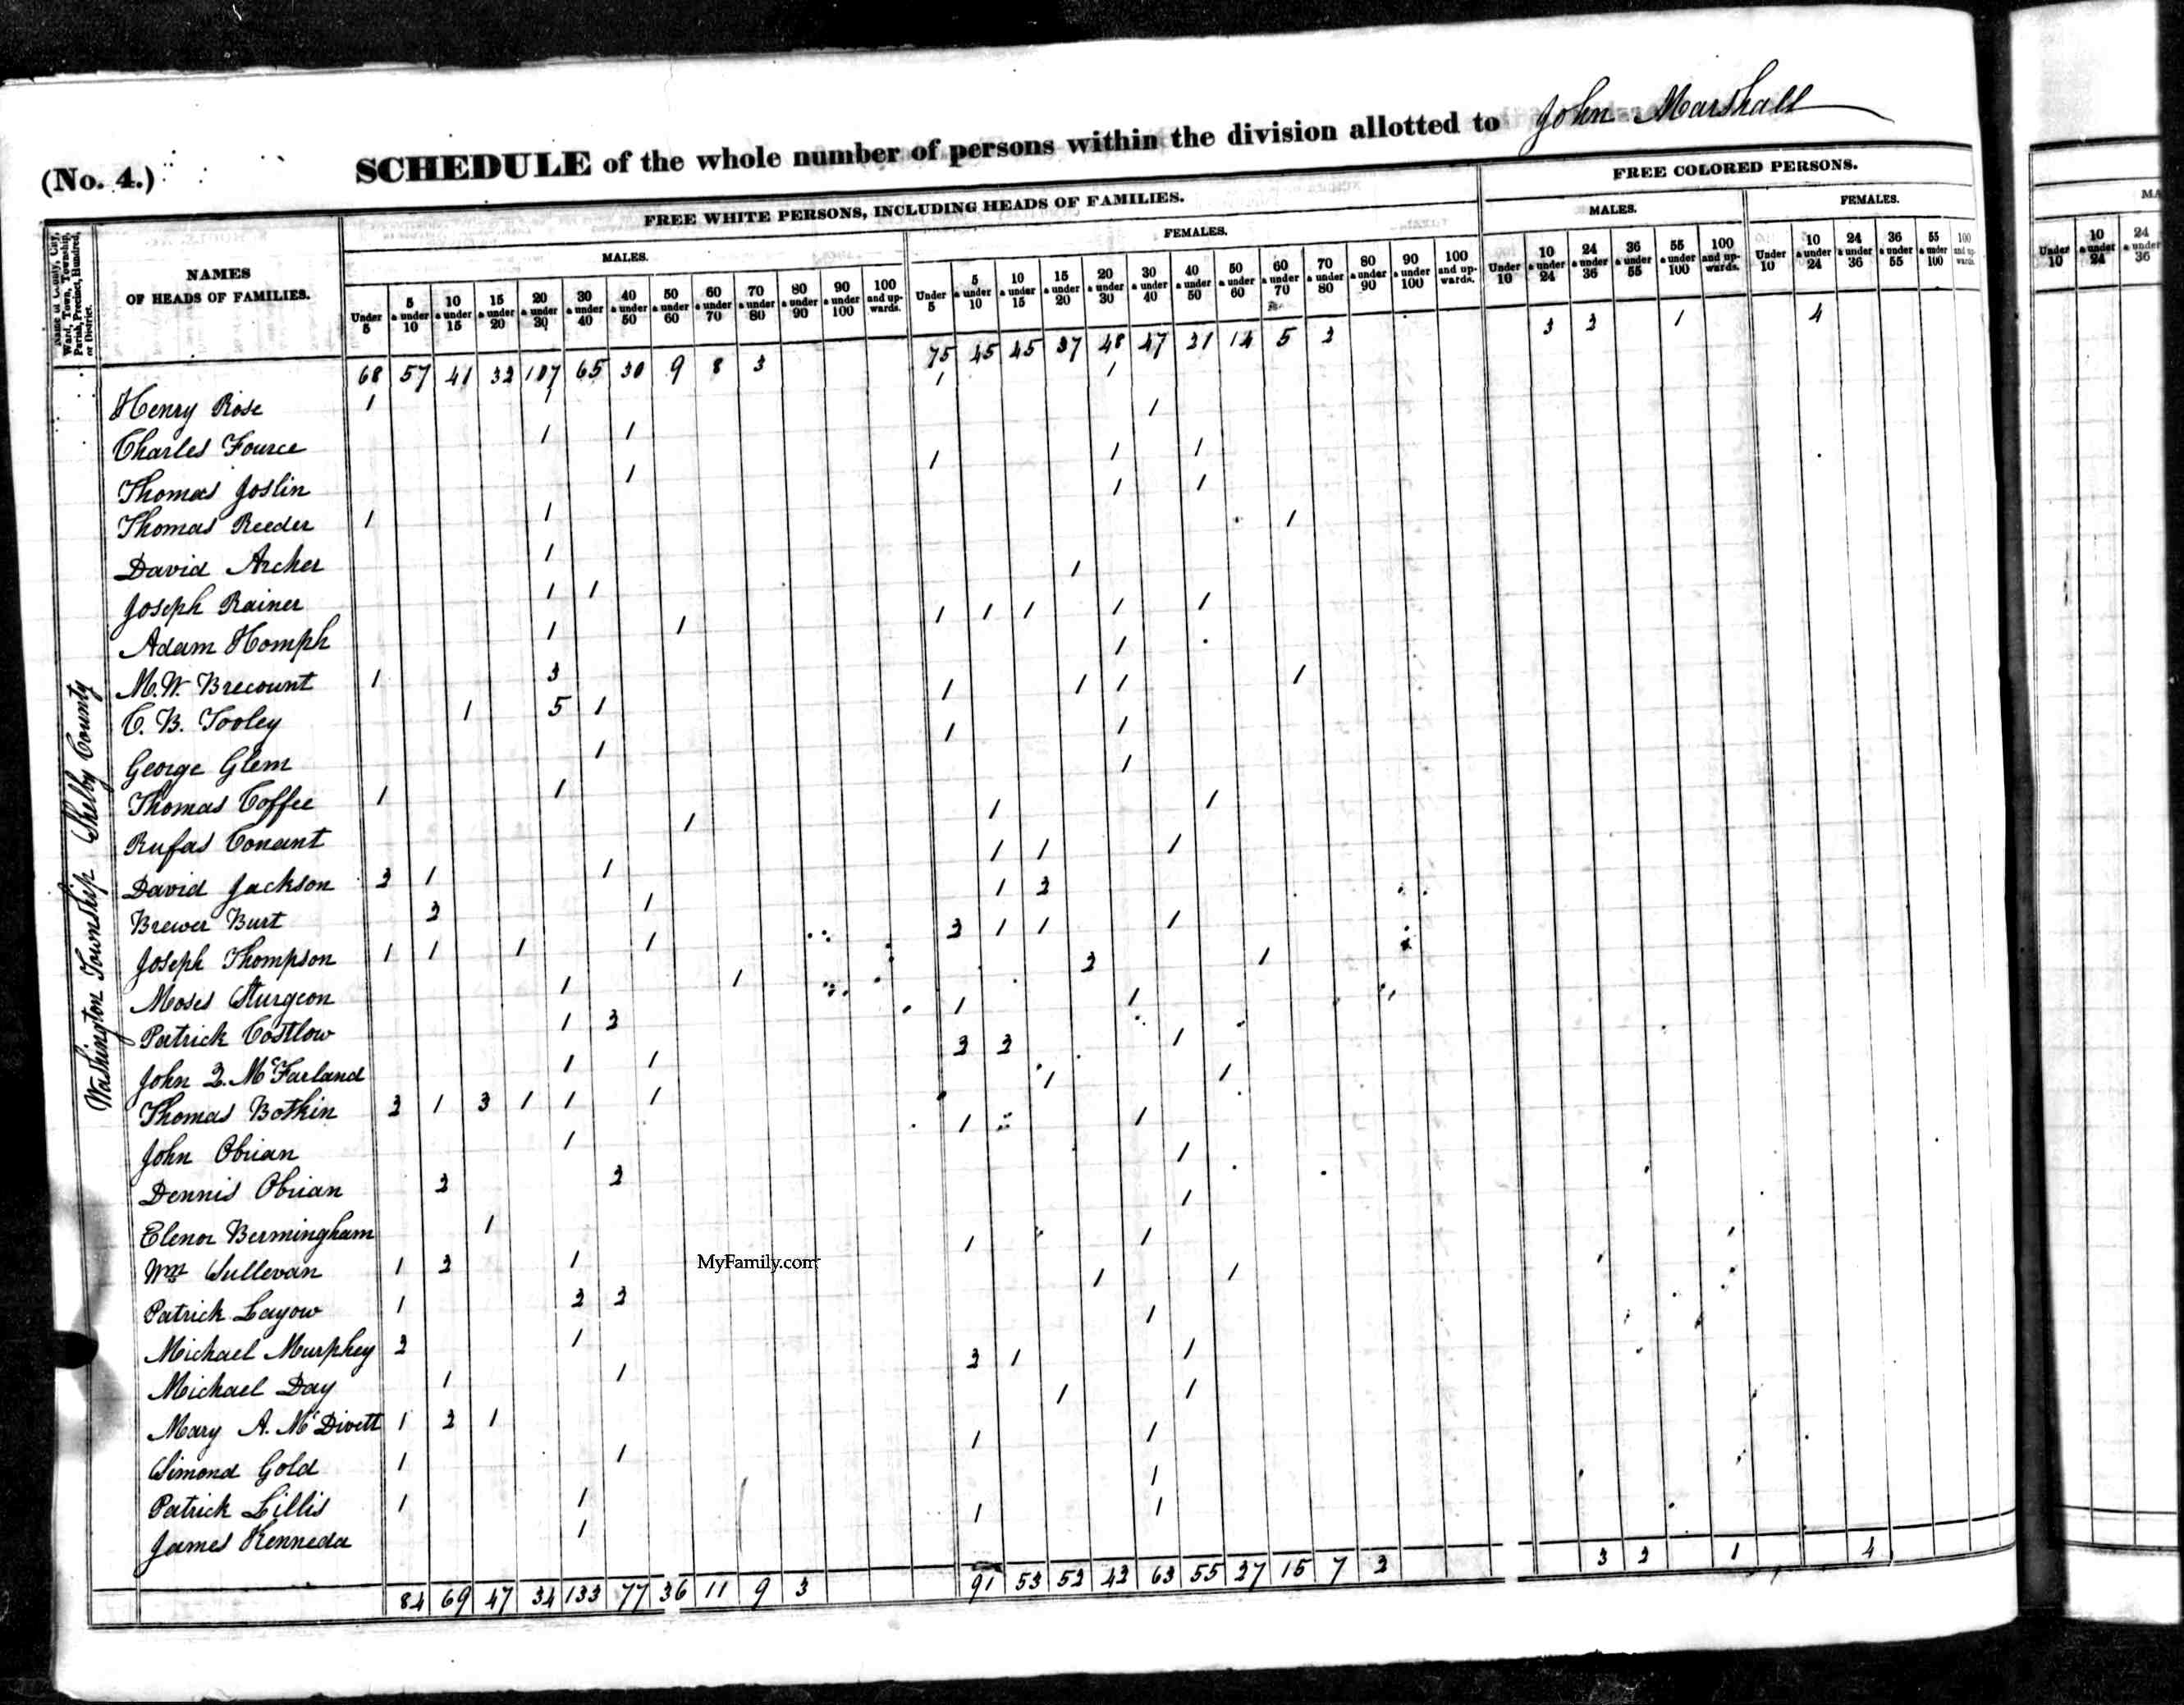 (No. 4.)
SCHEDULE of the whole number of persons within the division allotted to John Marshall
Name of County, City, Ward, Town, Township, Parish, Precinct, Hundred, or District.
NAMES OF HEADS OF FAMILIES.
FREE WHITE PERSONS, INCLUDING HEADS OF FAMILIES.
FREE COLORED PERSONS.
MALES.
FEMALES.
MALES.
FEMALES.
Under 5
5 & under 10
10 & under 15
15 & under 20
20 & under 30
30 & under 40
40 & under 50
50 & under 60
60 & under 70
70 & under 80
80 & under 90
90 & under 100
100 and upwards.
Under 5
5 & under 10
10 & under 15
15 & under 20
20 & under 30
30 & under 40
40 & under 50
50 & under 60
60 & under 70
70 & under 80
80 & under 90
90 & under 100
100 and upwards.
Under 10
10 & under 24
24 & under 36
36 & under 55
55 & under 100
100 and upwards.
Under 10
10 & under 24
24 & under 36
36 & under 55
55 & under 100
100 and upwards.
68 57 41 32 107 65 30 9 8 3 75 45 45 37 48 47 21 14 5 2 3 2 1 4
Washington Township Shelby County
Henry Rose 1 1 1 1
Charles Fource 1 1 1
Thomas Joslin 1 1 1 1
Thomas Reeder 1 1 1 1
David Archer 1 1
Joseph Rainer 1 1 1
Adam Homph 1 1 1 1 1 1 1
M. W. Brecount 1 3 1
C. B. Tooley 1 5 1 1 1 1 1
George Glem 1 1 1
Thomas Coffee 1 1 1
Rufas Conant 1 1 1
David Jackson 2 1 1 1 1 1
Brewer Burt 2 1 1 2
Joseph Thompson 1 1 1 1 2 1 1 1
Moses Sturgeon 1 1 2 1
Patrick Costlow 1 2 1 1
John Q. McFarland 1 1 2 2 1
Thomas Botkin 2 1 3 1 1 1 1 1
John Obrian 1 1 1
Dennis Obrian 2 2 1
Elenor Bermingham 1 1
Wm Sullevan 1 2 1 1 1
Patrick Layow 1 2 2 1 1
Michael Murphey 2 1 1
Michael Day 1 1 2 1 1
Mary A. McDivett 1 2 1 1 1
Simond Gold 1 1 1 1
Patrick Lillis 1 1 1
James Kenneda 1 1 1
84 69 47 34 133 77 36 11 9 3 91 53 52 42 63 55 27 15 7 2 3 2 1 4
MyFamily.com
MA
Under 10
10 & under 24
24 & under 36